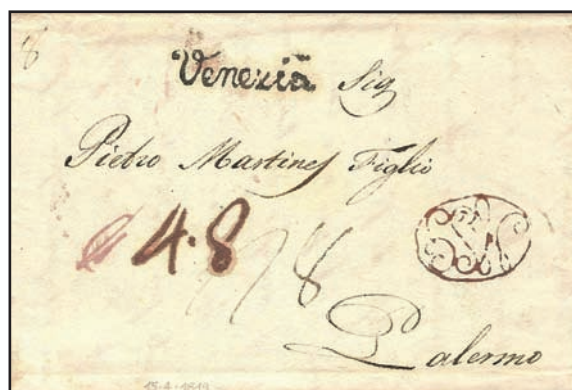 8
Venezia Sig
Pietro Martines Figlio
4.8
8
Palermo